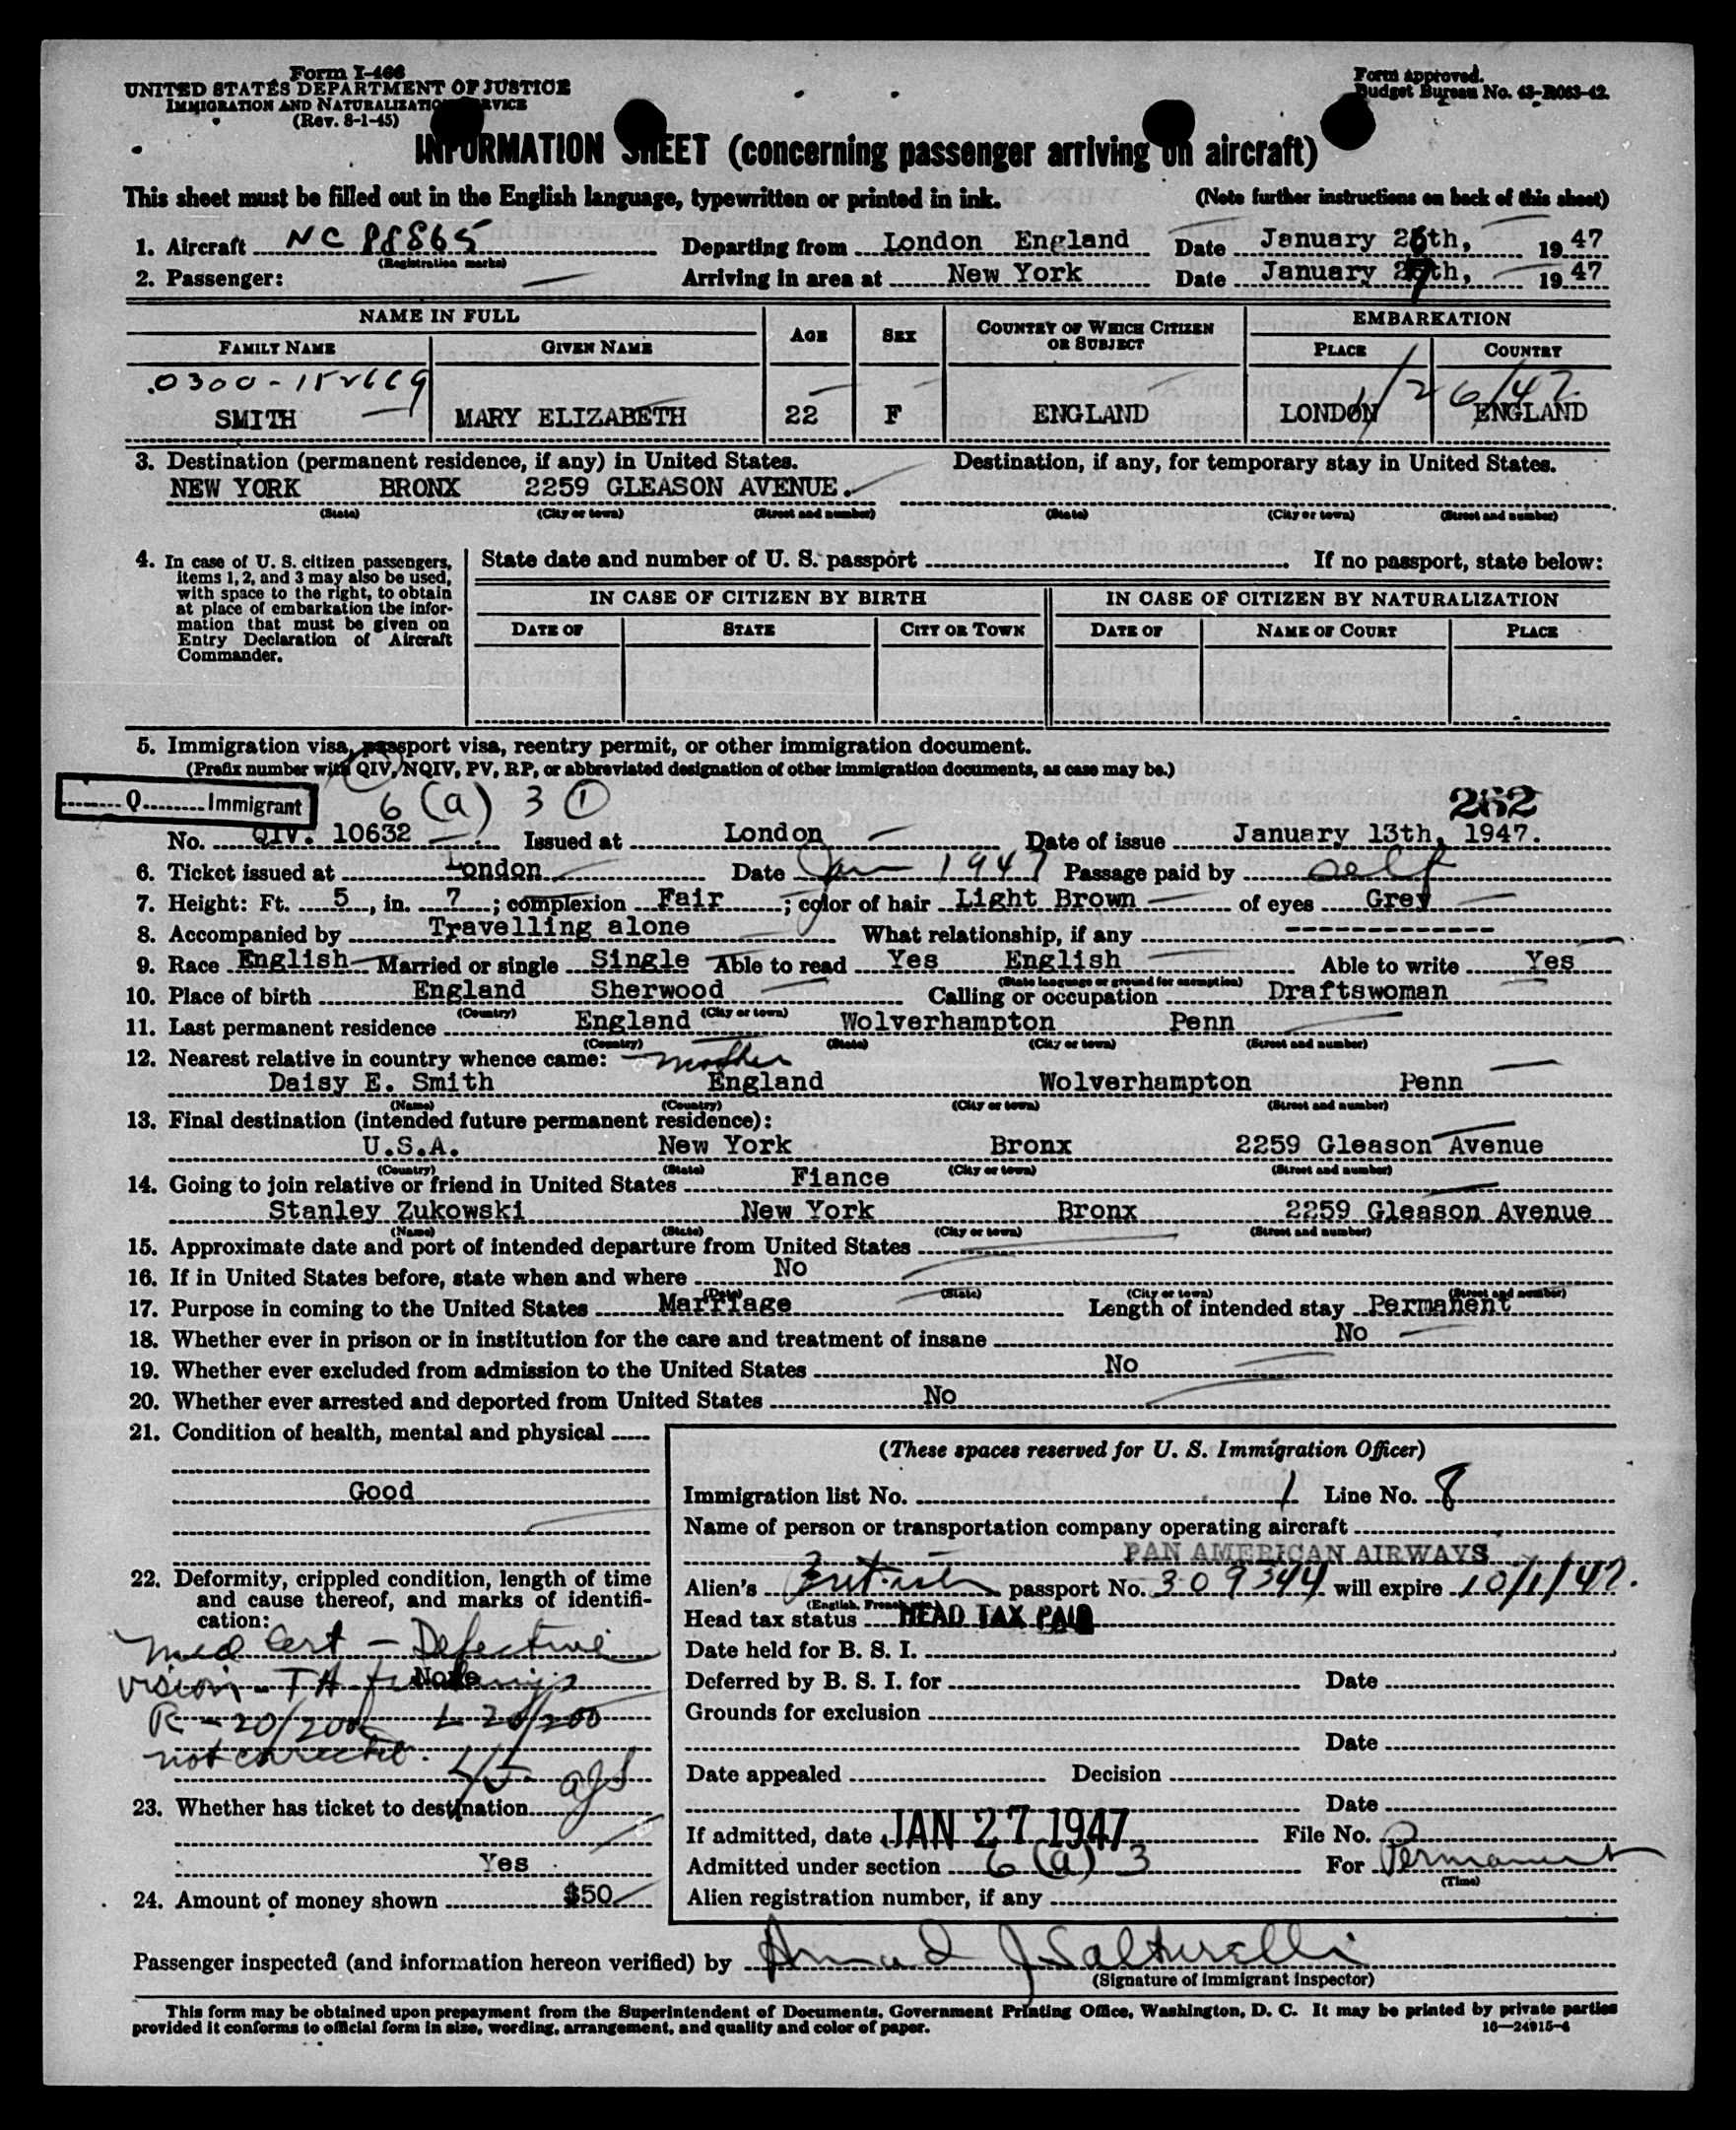 Form I-466
UNITED STATES DEPARTMENT OF JUSTICE
IMMIGRATION AND NATURALIZATION SERVICE
(Rev. 8-1-45)
Form approved.
Budget Bureau No. 43-R063-42.
INFORMATION SHEET (concerning passenger arriving on aircraft)
This sheet must be filled out in the English language, typewritten or printed in ink. (Note further instructions on back of this sheet)
1. Aircraft NC 88865 Departing from London England Date January 26th, 1947
(Registration marks)
2. Passenger: Arriving in area at New York Date January 27th, 1947
NAME IN FULL AGE SEX COUNTRY OF WHICH CITIZEN OR SUBJECT EMBARKATION
FAMILY NAME GIVEN NAME PLACE COUNTRY
0300-152669 1/26/47
SMITH MARY ELIZABETH 22 F ENGLAND LONDON ENGLAND
3. Destination (permanent residence, if any) in United States. Destination, if any, for temporary stay in United States.
NEW YORK BRONX 2259 GLEASON AVENUE.
(State) (City or town) (Street and number) (State) (City or town) (Street and number)
4. In case of U. S. citizen passengers, items 1, 2, and 3 may also be used, with space to the right, to obtain at place of embarkation the information that must be given on Entry Declaration of Aircraft Commander.
State date and number of U. S. passport If no passport, state below:
IN CASE OF CITIZEN BY BIRTH IN CASE OF CITIZEN BY NATURALIZATION
DATE OF STATE CITY OR TOWN DATE OF NAME OF COURT PLACE
5. Immigration visa, passport visa, reentry permit, or other immigration document.
(Prefix number with QIV, NQIV, PV, RP, or abbreviated designation of other immigration documents, as case may be.)
Q Immigrant 6 (a) 3 1 262
No. QIV. 10632 Issued at London Date of issue January 13th, 1947.
6. Ticket issued at London Date Jan 1947 Passage paid by self
7. Height: Ft. 5, in. 7; complexion Fair; color of hair Light Brown of eyes Grey
8. Accompanied by Travelling alone What relationship, if any --------------
9. Race English Married or single Single Able to read Yes English Able to write Yes
(State language or ground for exemption)
10. Place of birth England Sherwood Calling or occupation Draftswoman
(Country) (City or town)
11. Last permanent residence England Wolverhampton Penn
(Country) (State) (City or town) (Street and number)
12. Nearest relative in country whence came: mother
Daisy E. Smith England Wolverhampton Penn
(Name) (Country) (City or town) (Street and number)
13. Final destination (intended future permanent residence):
U.S.A. New York Bronx 2259 Gleason Avenue
(Country) (State) (City or town) (Street and number)
14. Going to join relative or friend in United States Fiance
Stanley Zukowski New York Bronx 2259 Gleason Avenue
(Name) (State) (City or town) (Street and number)
15. Approximate date and port of intended departure from United States
16. If in United States before, state when and where No
(Date) (State) (City or town) (Street and number)
17. Purpose in coming to the United States Marriage Length of intended stay Permanent
18. Whether ever in prison or in institution for the care and treatment of insane No
19. Whether ever excluded from admission to the United States No
20. Whether ever arrested and deported from United States No
21. Condition of health, mental and physical
Good
22. Deformity, crippled condition, length of time and cause thereof, and marks of identification:
None
Med Cert - Defective
vision -
R - 20/200 L 20/200
not corrected.
23. Whether has ticket to destination
Yes
24. Amount of money shown $50
(These spaces reserved for U. S. Immigration Officer)
Immigration list No. 1 Line No. 8
Name of person or transportation company operating aircraft
PAN AMERICAN AIRWAYS
Alien's British passport No. 309344 will expire 10/1/47.
(English, French, etc.)
Head tax status HEAD TAX PAID
Date held for B. S. I.
Deferred by B. S. I. for Date
Grounds for exclusion
Date
Date appealed Decision
Date
If admitted, date JAN 27 1947 File No.
Admitted under section 6 (a) 3 For Permanent
(Time)
Alien registration number, if any
Passenger inspected (and information hereon verified) by
(Signature of Immigrant Inspector)
This form may be obtained upon prepayment from the Superintendent of Documents, Government Printing Office, Washington, D. C. It may be printed by private parties
provided it conforms to official form in size, wording, arrangement, and quality and color of paper. 16—24915-4